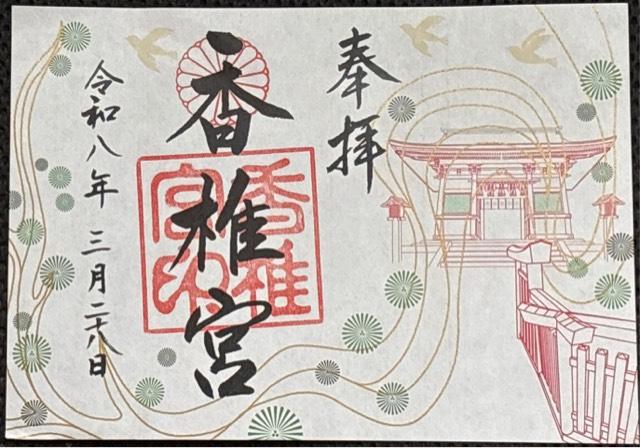 奉拝
香椎宮
香椎
宮印
令和八年 三月二十八日